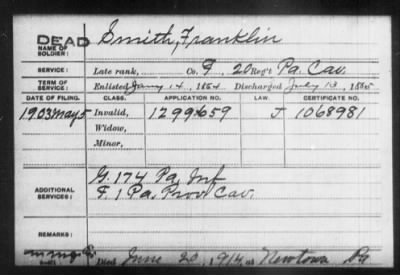 DEAD
NAME OF SOLDIER: Smith, Franklin
SERVICE: Late rank, Co. F, 20 Reg't Pa. Cav.
TERM OF SERVICE: Enlisted Jany 14, 1864 Discharged July 13, 1865
DATE OF FILING. CLASS. APPLICATION NO. LAW. CERTIFICATE NO.
1903 May 5 Invalid, 1299659 J 1068981
Widow,
Minor,
ADDITIONAL SERVICES: G. 174 Pa. Inf
F. 1 Pa. Prov. Cav.
REMARKS:
Died June 20, 1914 at Newtown Pa